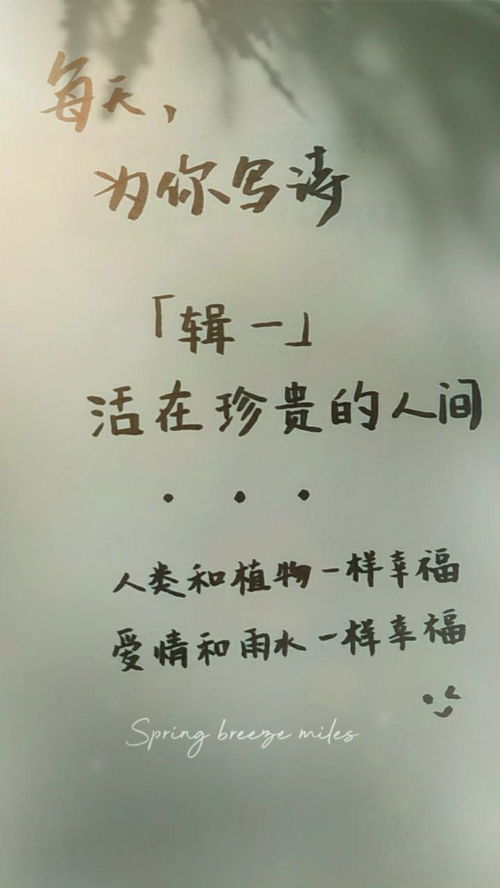 每天，
为你写诗
「辑一」
活在珍贵的人间
...
人类和植物一样幸福
爱情和雨水一样幸福
Spring breeze miles